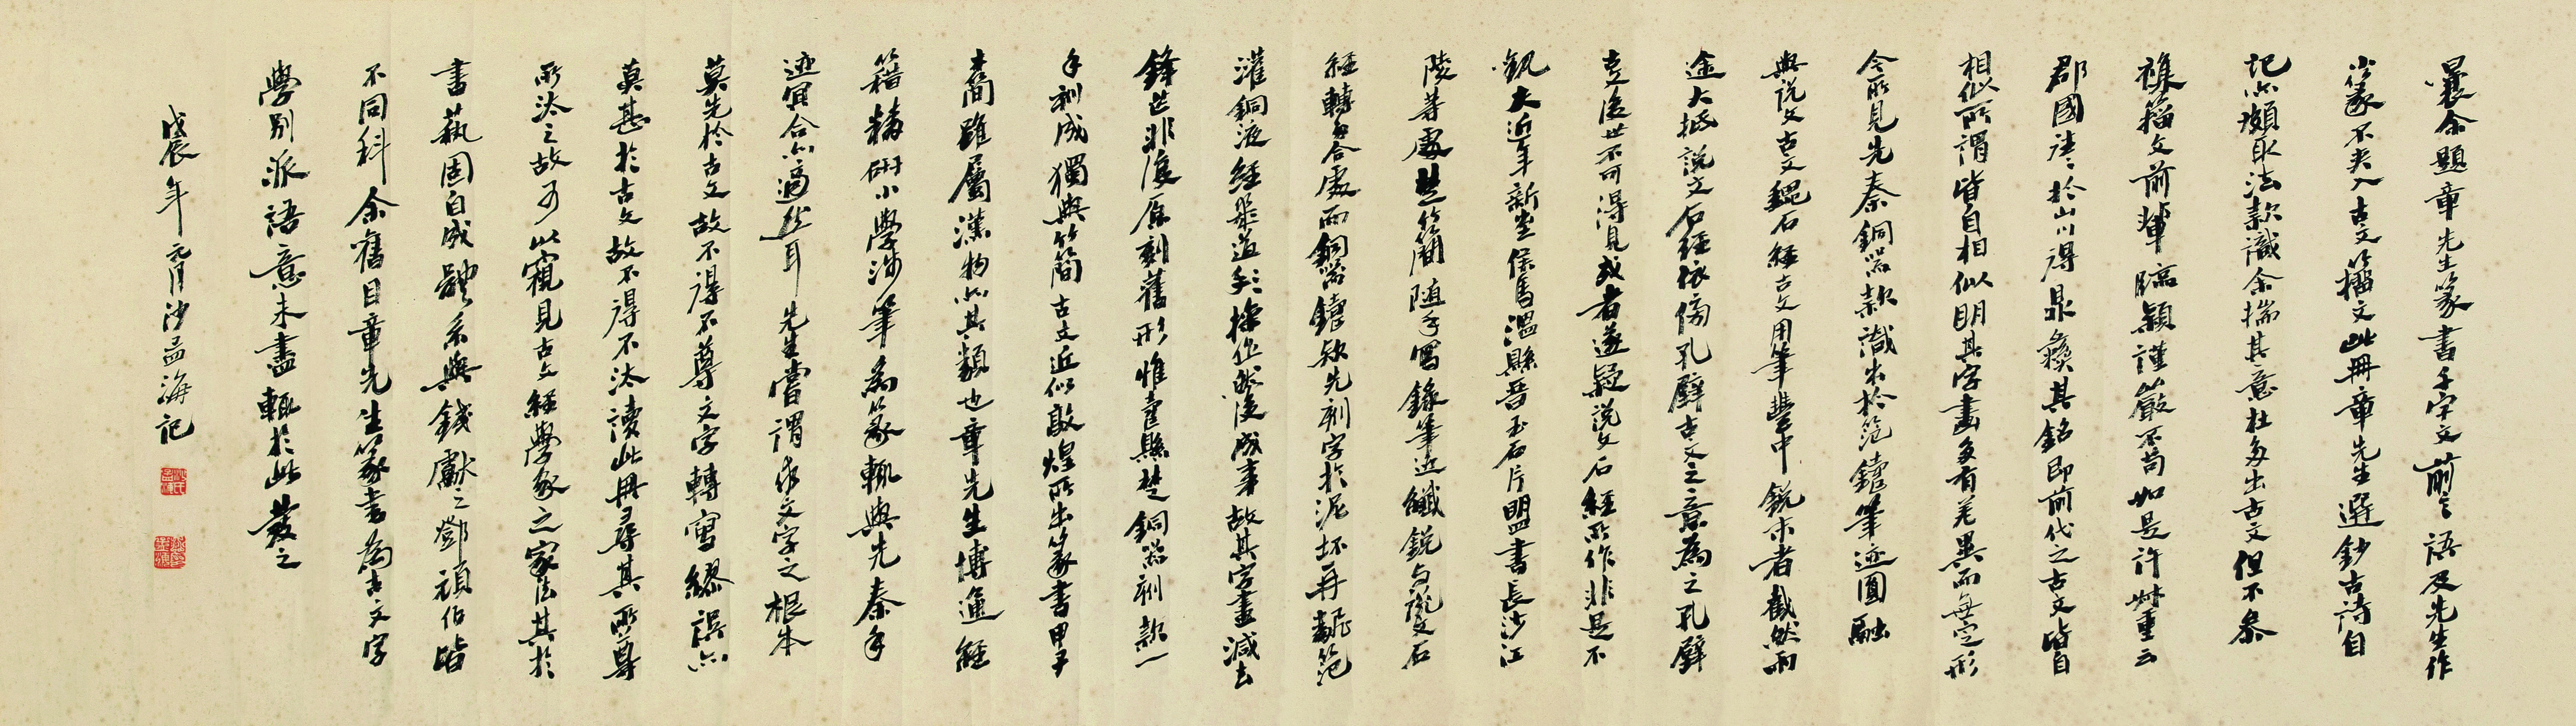 曩余題章先生篆書千字文前言語及先生作
小篆不夹入古文籀文此冊章先生選鈔古詩自
記亦頗取法款識余揣其意杜多出古文但不参
襍籀文前輩臨穎謹嚴不苟如是許叔重云
郡國往往於山川得鼎彝其銘即前代之古文皆自
相似所謂皆自相似明其字畫多有差異而無定形
今所見先秦銅器款識出於范鑄筆迹圓融
與說文古文魏石經古文用筆豐中銳末者截然兩
途大抵說文石經依傍孔壁古文之意為之孔壁
真迹後世不可得見或者遂疑說文石經所作非是不
觀夫近年新出侯馬溫縣晉玉石片盟書長沙江
陵等處楚簡隨手寫錄筆近纖銳与說文石
經轉多合處而銅器鑄款先刻字於泥坯再翻范
灌銅液經歷道道手操作然後成事故其字畫減去
鋒芒非復原刻舊形惟壽縣楚銅器刻款一
手刻成獨與簡古文近似敦煌所出篆書甲子
木簡雖屬漢物亦其類也章先生博通經
籍精研小學涉筆為篆輒與先秦手
迹冥合亦適然耳先生嘗謂求文字之根本
莫先於古文故不得不尊文字轉寫繆誤亦
莫甚於古文故不得不汰讀此冊尋其所尊
所汰之故可以窺見古文經學家之家法其於
書藝固自成體系與錢獻之鄧頑伯皆
不同科余舊目章先生篆書為古文字
學別派語意未盡輒於此發之
戊辰年元月沙孟海記